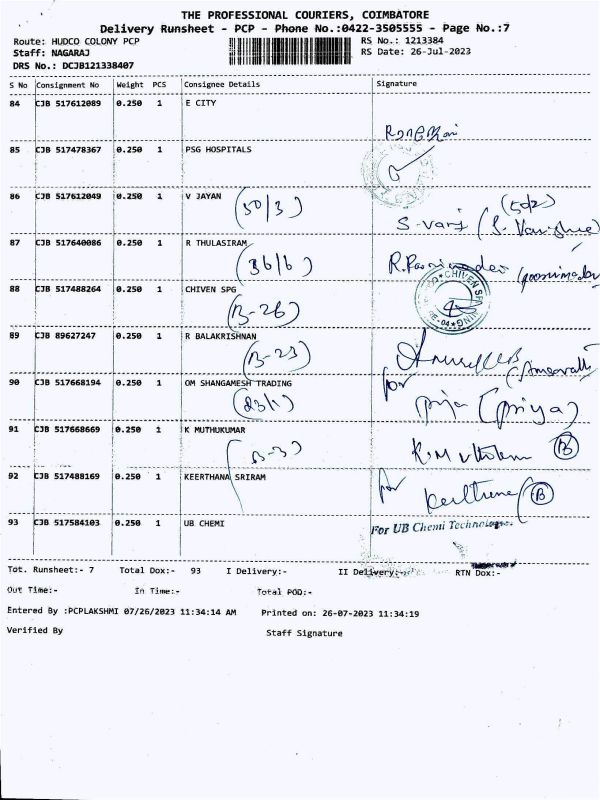 THE PROFESSIONAL COURIERS, COIMBATORE
Delivery Runsheet - PCP - Phone No.:0422-3505555 - Page No.:7
Route: HUDCO COLONY PCP RS No.: 1213384
Staff: NAGARAJ RS Date: 26-Jul-2023
DRS No.: DCJB121338407
S No Consignment No Weight PCS Consignee Details Signature
84 CJB 517612089 0.250 1 E CITY
85 CJB 517478367 0.250 1 PSG HOSPITALS
86 CJB 517612049 0.250 1 V JAYAN
(50/3)
87 CJB 517640086 0.250 1 R THULASIRAM
(36/6)
88 CJB 517488264 0.250 1 CHIVEN SPG
CHIVEN
(B-26)
89 CJB 89627247 0.250 1 R BALAKRISHNAN
(B-23)
for
90 CJB 517668194 0.250 1 OM SHANGAMESH TRADING
(23/1) priya (priya)
91 CJB 517668669 0.250 1 K MUTHUKUMAR
B-3) B
92 CJB 517488169 0.250 1 KEERTHANA SRIRAM for
B
93 CJB 517584103 0.250 1 UB CHEMI For UB Chemi Technologies.
Tot. Runsheet:- 7 Total Dox:- 93 I Delivery:- II Delivery:- RTN Dox:-
Out Time:- In Time:- Total POD:-
Entered By :PCPLAKSHMI 07/26/2023 11:34:14 AM Printed on: 26-07-2023 11:34:19
Verified By Staff Signature